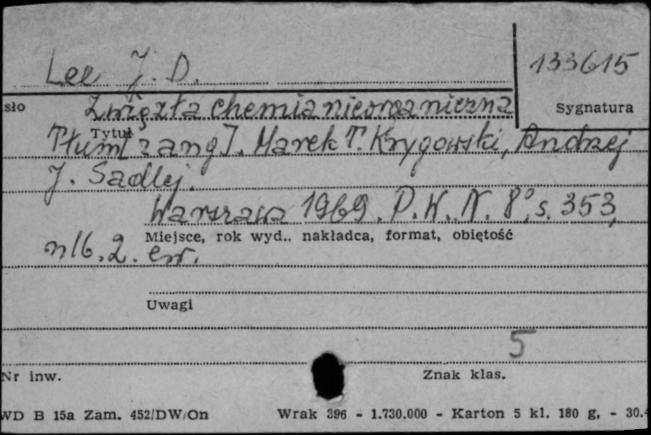 Lee J. D.
133615
sło
Zwięzła chemia nieorganiczna
Sygnatura
Tytuł
Tłum[z ang]. Marek T. Krygowski, Andrzej
J. Sadlej.
Warszawa 1969. P.W.N. 8°, s. 353,
Miejsce, rok wyd.. nakładca, format, obiętość
nlb. 2.
Uwagi
5
Nr inw.
Znak klas.
WD B 15a Zam. 452/DW/On
Wrak 396 - 1.730.000 - Karton 5 kl. 180 g, - 30.4